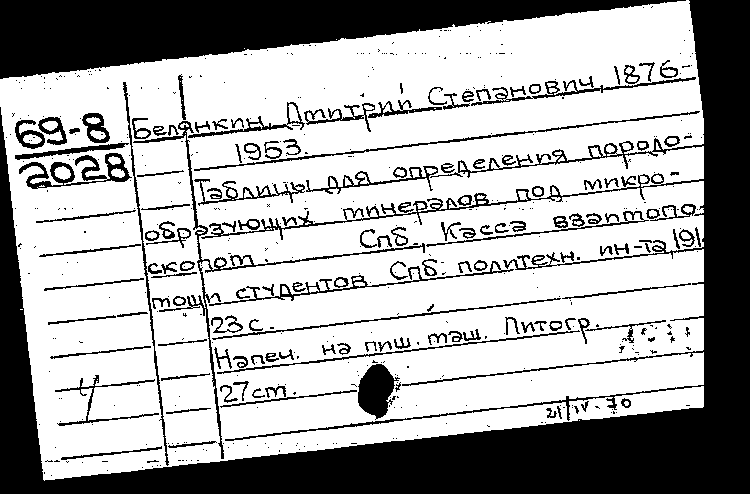 69-8
2028
Белянкин, Дмитрий Степанович, 1876-
1953.
Таблицы для определения породо-
образующих минералов под микро-
скопом. Спб., Касса взаимопо-
мощи студентов Спб. политехн. ин-та, 191
23 с.
Напеч. на пиш. маш. Литогр.
27 см.
21/IV-70